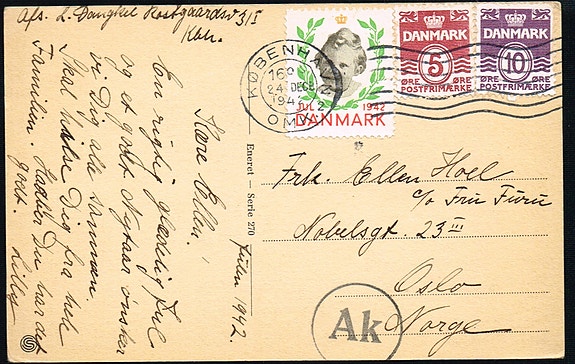 Afs. L. Dangkel Rostgaardsv 3/I
Kbh.
Kære Ellen!
En rigtig glædelig Jul
og et godt Nytaar ønsker
vi Dig alle sammen
Skal hilse Dig fra hele
Familien. Haaber Du har det
godt.
Lilly
Julen 1942.
Eneret – Serie 270
KØBENHAVN
24 DECB
194
OMK
JUL 1942
DANMARK
DANMARK
5
ØRE ØRE
POSTFRIMÆRKE
DANMARK
10
ØRE ØRE
POSTFRIMÆRKE
Frk. Ellen Hoel
c/o Fru Furu
Nobelsgt. 23 III
Oslo
Norge
Ak